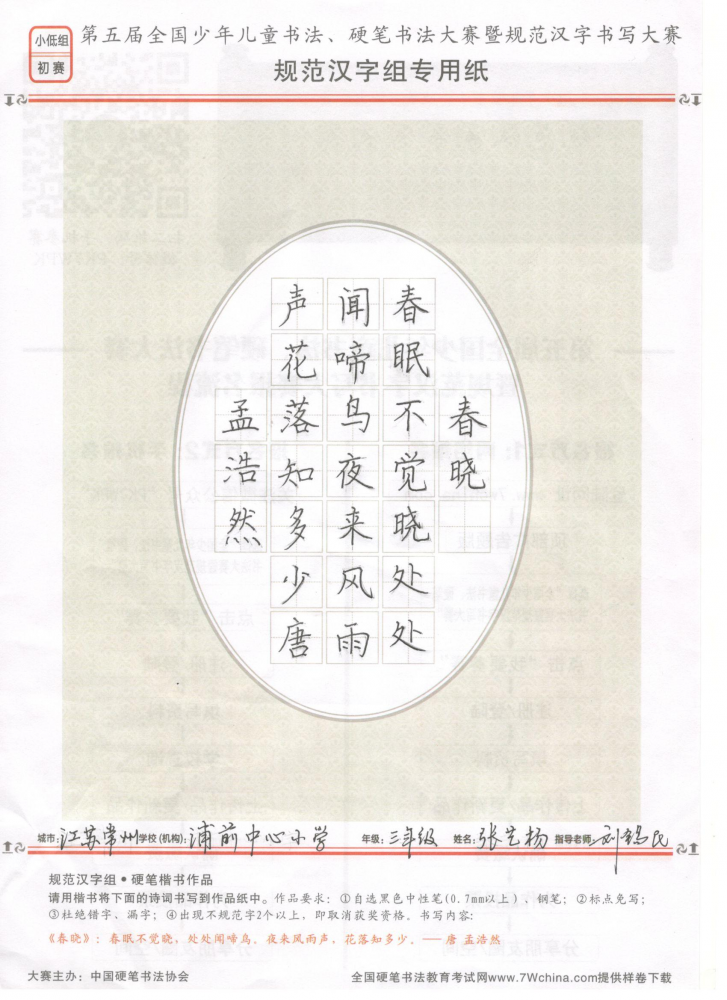 小低组
初赛
第五届全国少年儿童书法、硬笔书法大赛暨规范汉字书写大赛
规范汉字组专用纸
春晓
春眠不觉晓处处
闻啼鸟夜来风雨
声花落知多少唐
孟浩然
城市:江苏常州 学校(机构):浦前中心小学 年级:三年级 姓名:张艺杨 指导老师:刘锦民
规范汉字组•硬笔楷书作品
请用楷书将下面的诗词书写到作品纸中。作品要求:①自选黑色中性笔(0.7mm以上)、钢笔;②标点免写;
③杜绝错字、漏字;④出现不规范字2个以上,即取消获奖资格。书写内容:
《春晓》:春眠不觉晓,处处闻啼鸟。夜来风雨声,花落知多少。——唐 孟浩然
大赛主办:中国硬笔书法协会 全国硬笔书法教育考试网www.7Wchina.com提供样卷下载